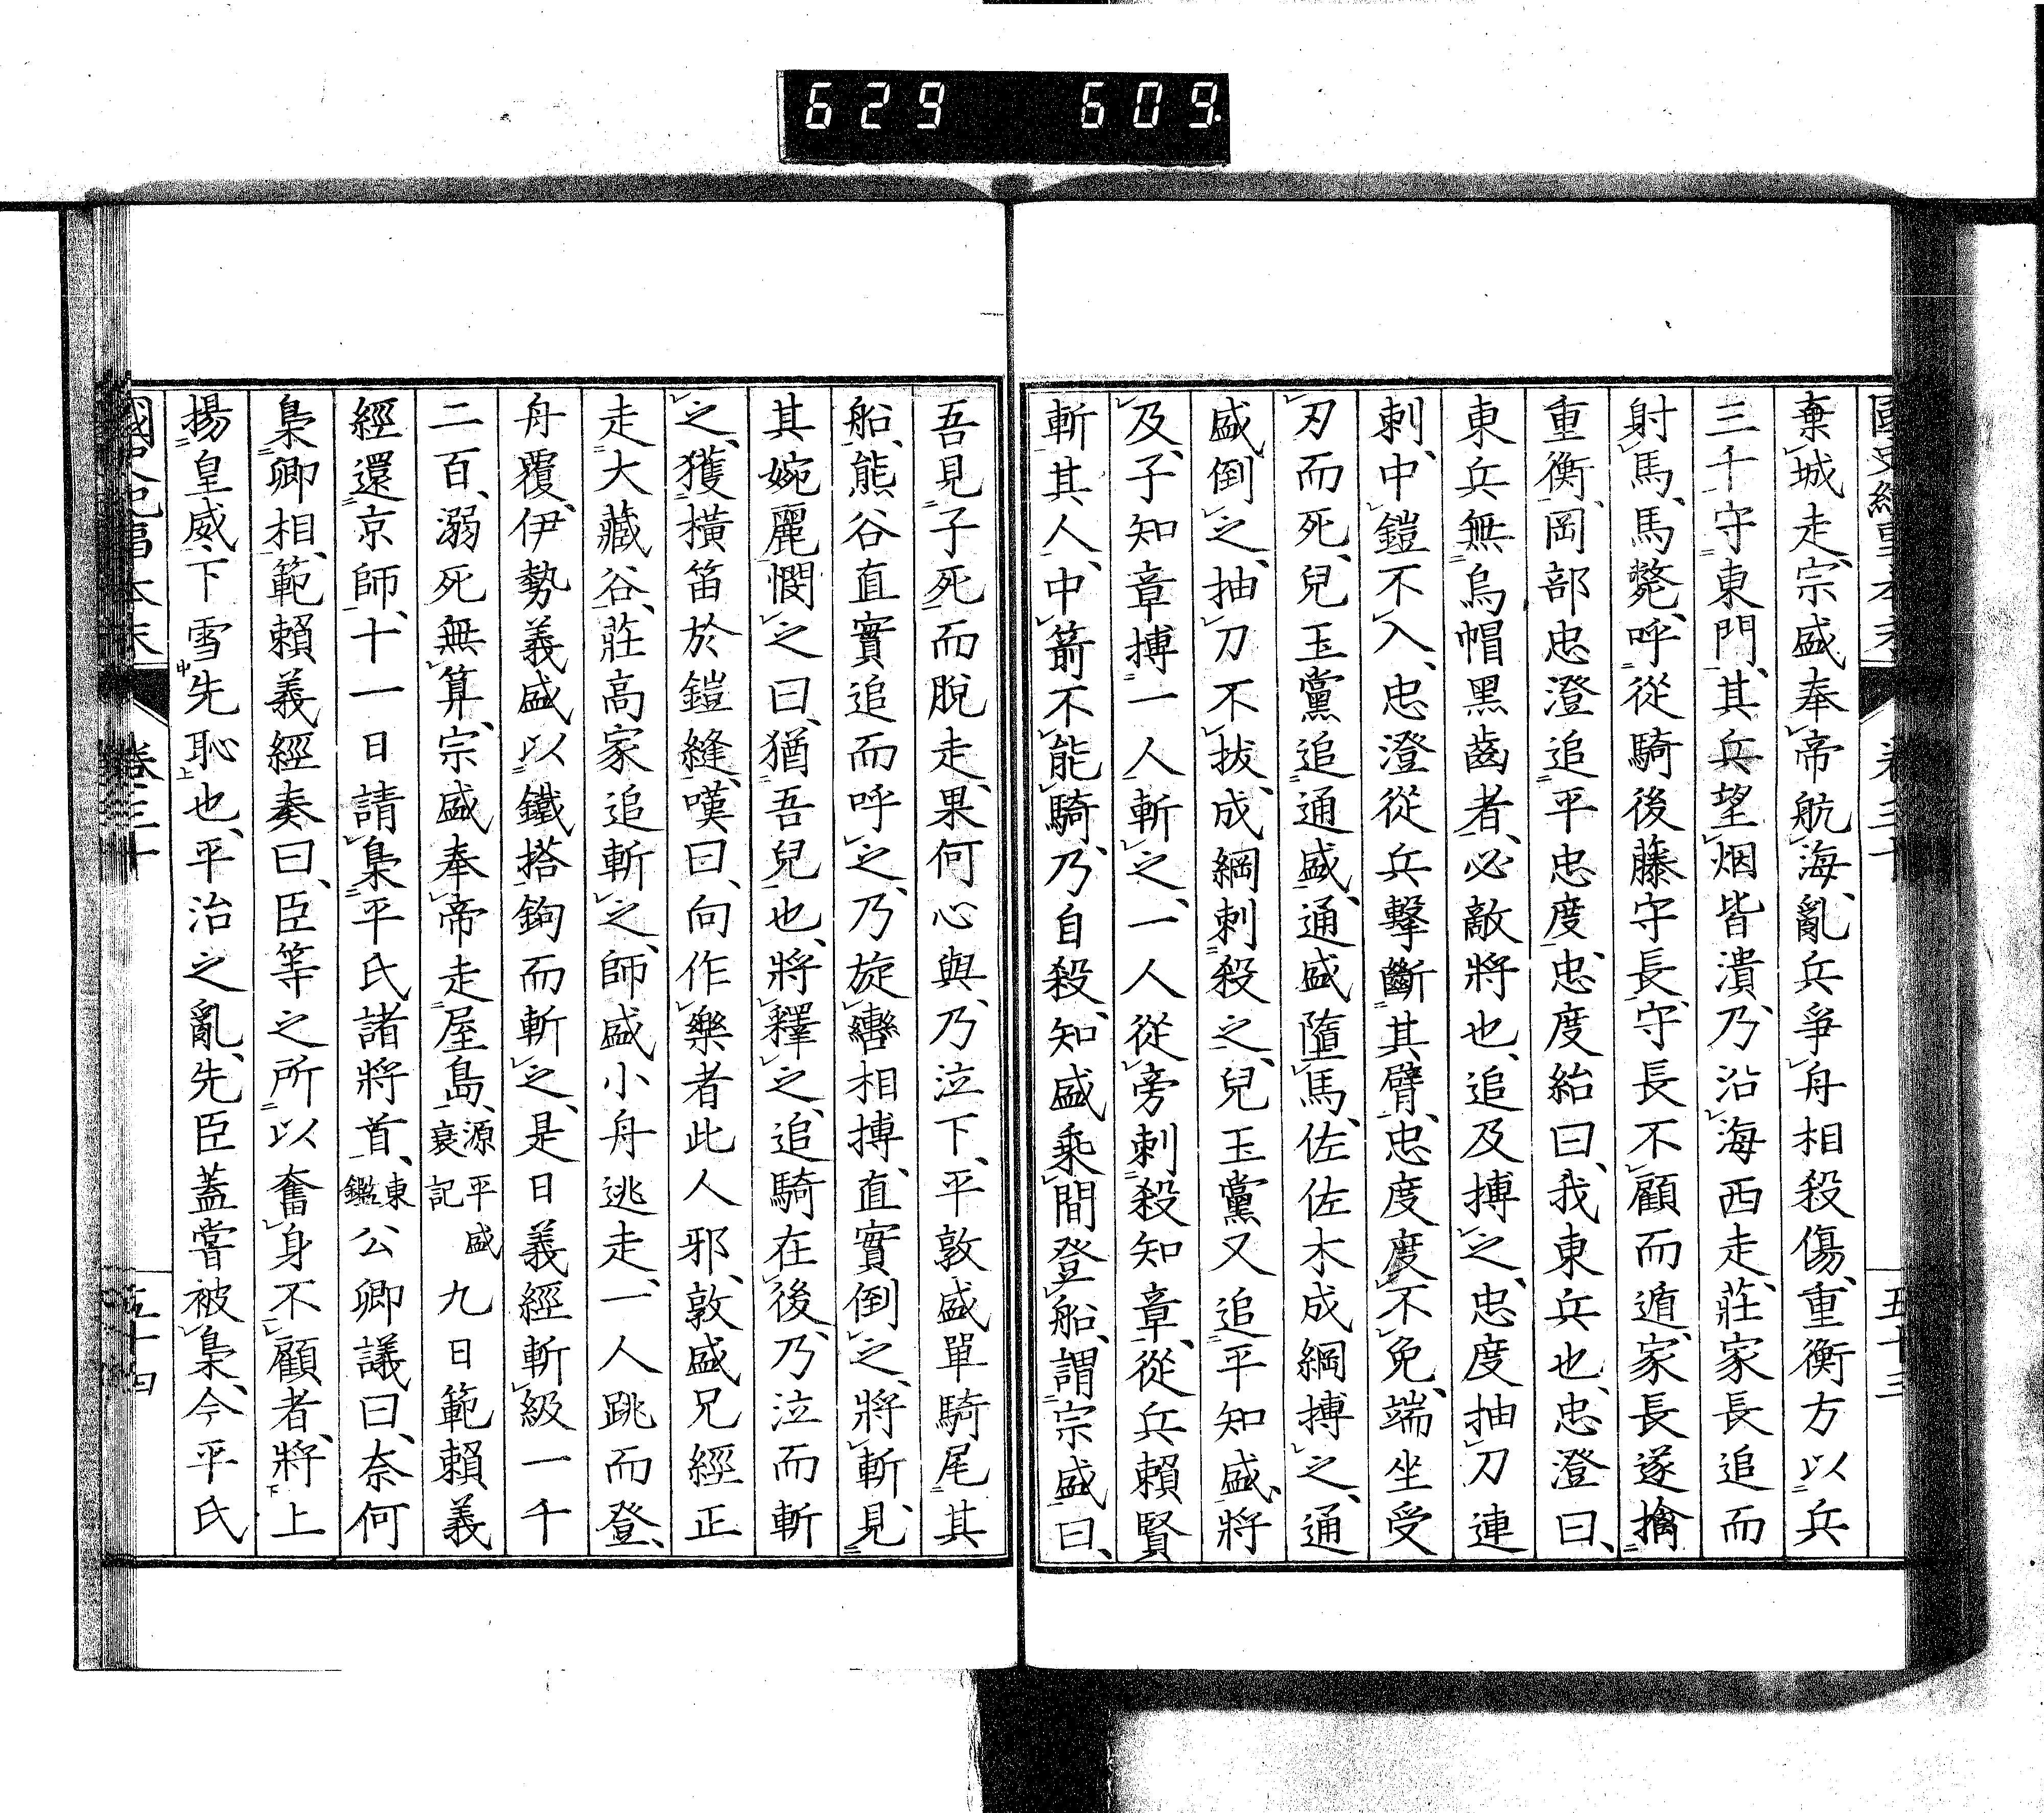 629 609.
棄城走、宗盛奉帝航海、亂兵爭舟相殺傷、重衡方以兵
三千守東門、其兵望烟皆潰、乃沿海西走、莊家長追而
射馬、馬斃、呼從騎後藤守長、守長不顧而遁、家長遂擒
重衡、岡部忠澄追平忠度、忠度紿曰、我東兵也、忠澄曰、
東兵無烏帽黑齒者、必敵將也、追及搏之、忠度抽刀連
刺、中鎧不入、忠澄從兵擊斷其臂、忠度度不免、端坐受
刃而死、兒玉黨追通盛、通盛墮馬、佐佐木成綱搏之、通
盛倒之、抽刀不拔、成綱刺殺之、兒玉黨又追平知盛、將
及、子知章搏一人斬之、一人從旁刺殺知章、從兵賴賢
斬其人、中箭不能騎、乃自殺、知盛乘間登船、謂宗盛曰、
五十三
吾見子死而脫走、果何心與、乃泣下、平敦盛單騎尾其
船、熊谷直實追而呼之、乃旋轡相搏、直實倒之、將斬、見
其婉麗憫之曰、猶吾兒也、將釋之、追騎在後、乃泣而斬
之、獲橫笛於鎧縫、嘆曰、向作樂者此人邪、敦盛兄經正
走大藏谷、莊高家追斬之、師盛小舟逃走、一人跳而登、
舟覆、伊勢義盛以鐵搭鉤而斬之、是日義經斬級一千
二百、溺死無算、宗盛奉帝走屋島、源平盛衰記九日範賴義
經還京師、十一日請梟平氏諸將首、東鑑公卿議曰、奈何
梟卿相、範賴義經奏曰、臣等之所以奮身不顧者、將下上
揚皇威、下雪中先恥上也、平治之亂、先臣蓋嘗被梟、今平氏
國史紀事本末 卷三十 五十四